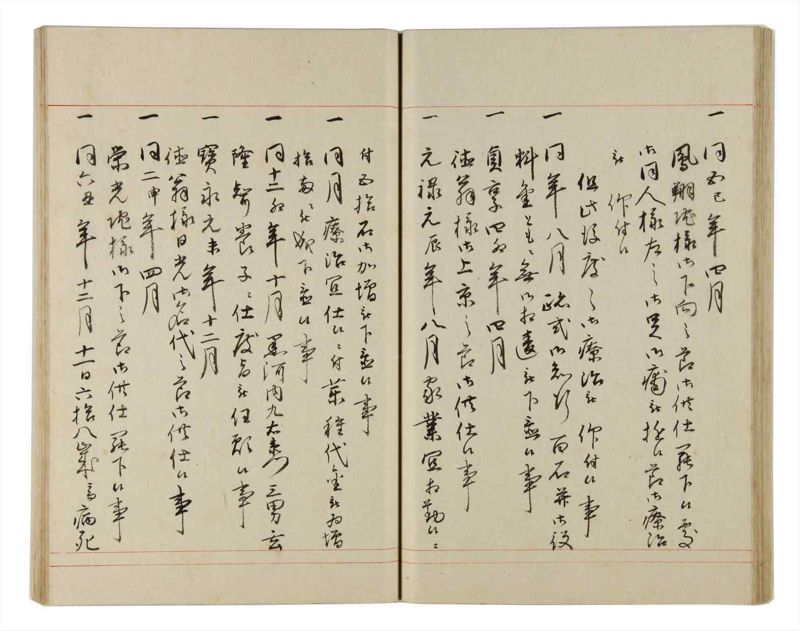 一 同五巳年四月
鳳翔院様御下向之節御供仕罷下候処
御同人様左之御足御痛被遊候節御療治
被 仰付候
但此均度々御療治被 仰付候事
一 同年八月跡式御知行百石并御役
料金是又無御相違被下置候事
一 貞享四卯年四月
徳翁様御上京之節御供仕候事
一 元禄元辰年八月家業宜相勤候ニ
付五拾石御加増被下置候事
一 同月療治宜仕候ニ付薬種代金被為増
拾両ニ被成下置候事
一 同十二卯年十月黒河内九右衛門三男玄
隆智養子ニ仕度旨被任願候事
一 寶永元未年十二月
徳翁様日光御名代之節御供仕候事
一 同二申年四月
栄光院様御下之節御供仕罷下候事
一 同六丑年十二月十一日六拾八歳ニ而病死